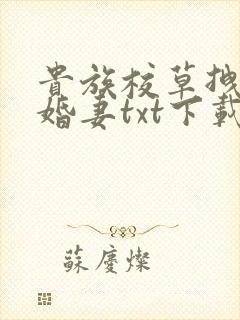 貴族校草拽
婚妻txt下載
蘇慶燦